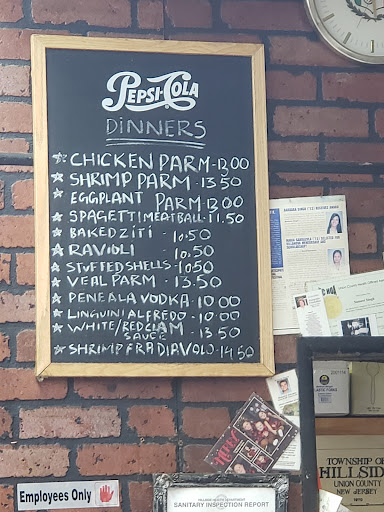 PEPSI-COLA
DINNERS
CHICKEN PARM - 12,00
SHRIMP PARM - 13.50
EGGPLANT PARM 12.00
SPAGETTI MEATBALL - 11.50
BAKED ZITI - 10.50
RAVIOLI 10.50
STUFFED SHELLS - 10.50
VEAL PARM - 13.50
PENE ALA VODKA - 10.00
LINGUINI ALFREDO - 10.00
WHITE/RED CLAM SAUCE - 13.50
SHRIMP FRA DIAVOLO - 14.50
Employees Only
SANITARY INSPECTION REPORT
TOWNSHIP OF
HILLSIDE
UNION COUNTY
NEW JERSEY